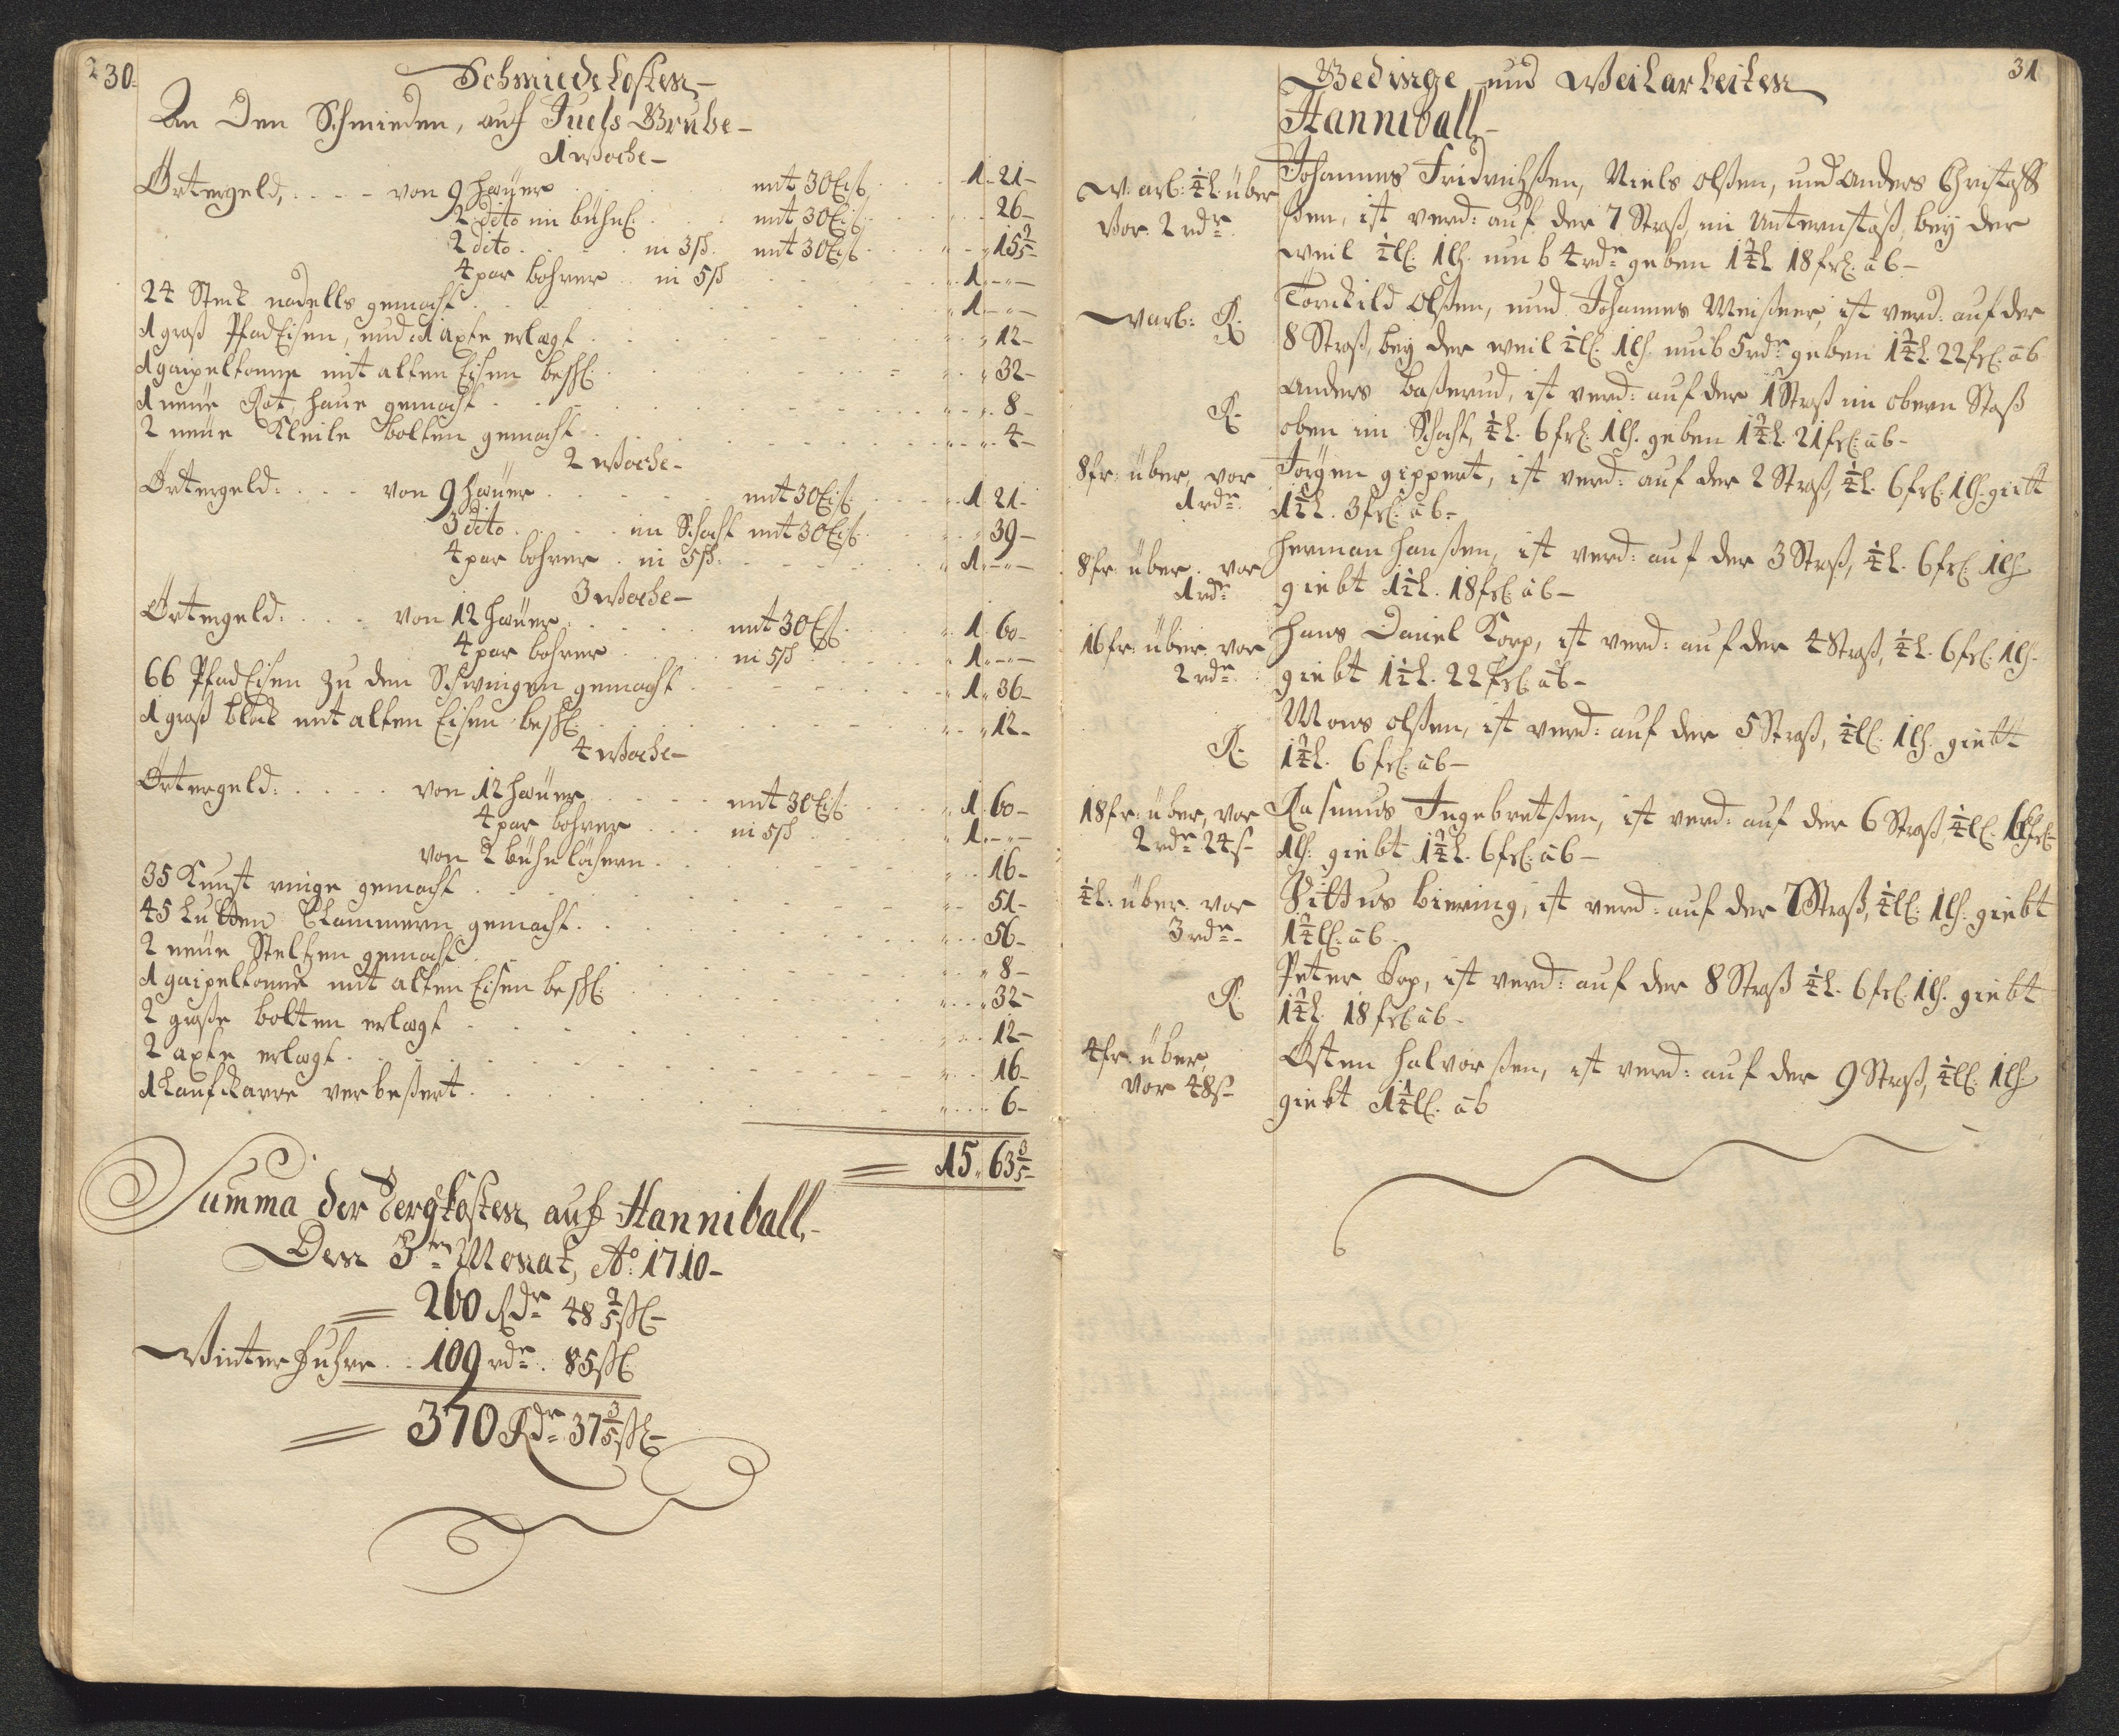 230.
Schmiedekosten
An den Schmieden, auf Fuchs Grube
1 Woche
Örtergeld, von 9 Häuer mit 30 Eis: 1 21
2 dito im bühn: mit 30 Eis: 26
2 dito in 3ß mit 30 Eis: 15 2/5
4 par bohrer in 5ß 1
24 Stück nadells gemacht 1
1 groß PfadEisen, und 1 axte erlagt 12
1 gaipeltonne mit alten Eisen beschl: 32
1 neüe Rat haue gemacht 8
2 neüe Kleile bolten gemacht 4
2 Woche
Örtergeld: von 9 Häuer mit 30 Eis: 1 21
3 dito im Schacht mit 30 Eis: 39
4 par bohrer in 5ß: 1
3 Woche
Örtergeld: von 12 Häuer mit 30 Eis: 1 60
4 par bohrer in 5ß 1
66 PfadEisen zu den Schwingen gemacht 1 36
1 groß block mit alten Eisen beschl: 12
4 Woche
Örtergeld: von 12 Häuer mit 30 Eis: 1 60
4 par bohrer in 5ß 1
von 2 bühnlöchern 16
35 Kunst ringe gemacht 51
45 Lutten Clammern gemacht 56
2 neüe Steltzen gemacht 8
1 gaipeltonne mit alten Eisen beschl: 32
2 große bolten erlagt 12
2 axte erlagt 16
1 Laufkarre verbeßert 6
15 63 3/5
Summa der Bergkosten auf Hanniball,
Den 3ten Monat, Ao: 1710
260 Rdr 48 3/5 ßl
Winterfuhre 109 rdr. 85 ßl
370 Rdr 37 3/5 ßl
31
Gedinge und Weilarbeiten
Hanniball
W: arb: 1/4 L über Johannes Fridrichßen, Niels Olßen, und Anders Christoff
Vor 2 rdr ßen, ist verd: auf der 7 Straß, im Unternstoß, bey der
weil 1/2 L. 1 lh. umb 4 rdr geben 1 3/4 L 18 frl: ab
W arb: R: Torckild Olßen, und Johannes Meißner, ist verd: auf der
8 Straß, bey der weil 1/2 L. 1 lh. umb 5 rdr geben 1 3/4 L. 22 frl: ab
R: Anders Baßerud, ist verd: auf der 1 Straß im obern Stoß
oben im Schacht, 1/4 L. 6 frl: 1 lh. geben 1 3/4 L. 21 frl: ab
8 fr: über, vor Jörgen Gippert, ist verd: auf der 2 Straß, 1/4 L. 6 frl: 1 lh. giebt
1 rdr. 1 1/2 L. 3 frl: ab
8 fr: über vor Herman Hanßen, ist verd: auf der 3 Straß, 1/4 L. 6 frl: 1 lh
1 rdr giebt 1 1/2 L. 18 frl: ab
16 fr: über vor Hans Daniel Korp, ist verd: auf der 4 Straß, 1/4 L. 6 frl: 1 lh.
2 rdr giebt 1 1/2 L. 22 frl: ab
Mons Olßen, ist verd: auf der 5 Straß, 1/2 L. 1 lh. giebt
R: 1 3/4 L. 6 frl: ab
18 fr: über, vor Rasmus Ingebretßen, ist verd: auf der 6 Straß, 1/4 L.
2 rdr 24 ß 1 lh. giebt 1 3/4 L. 6 frl: ab
1/4 L: über vor Vittus Biering, ist verd: auf der 7 Straß, 1/2 L. 1 lh. giebt
3 rdr 1 3/4 L. ab
Peter Torp, ist verd: auf der 8 Straß 1/4 L. 6 frl: 1 lh. giebt
R: 1 3/4 L. 18 frl: ab
4 fr: über, Östen Halvorßen, ist verd: auf der 9 Straß, 1/2 L. 1 lh
vor 48 ß giebt 1 1/4 L. ab